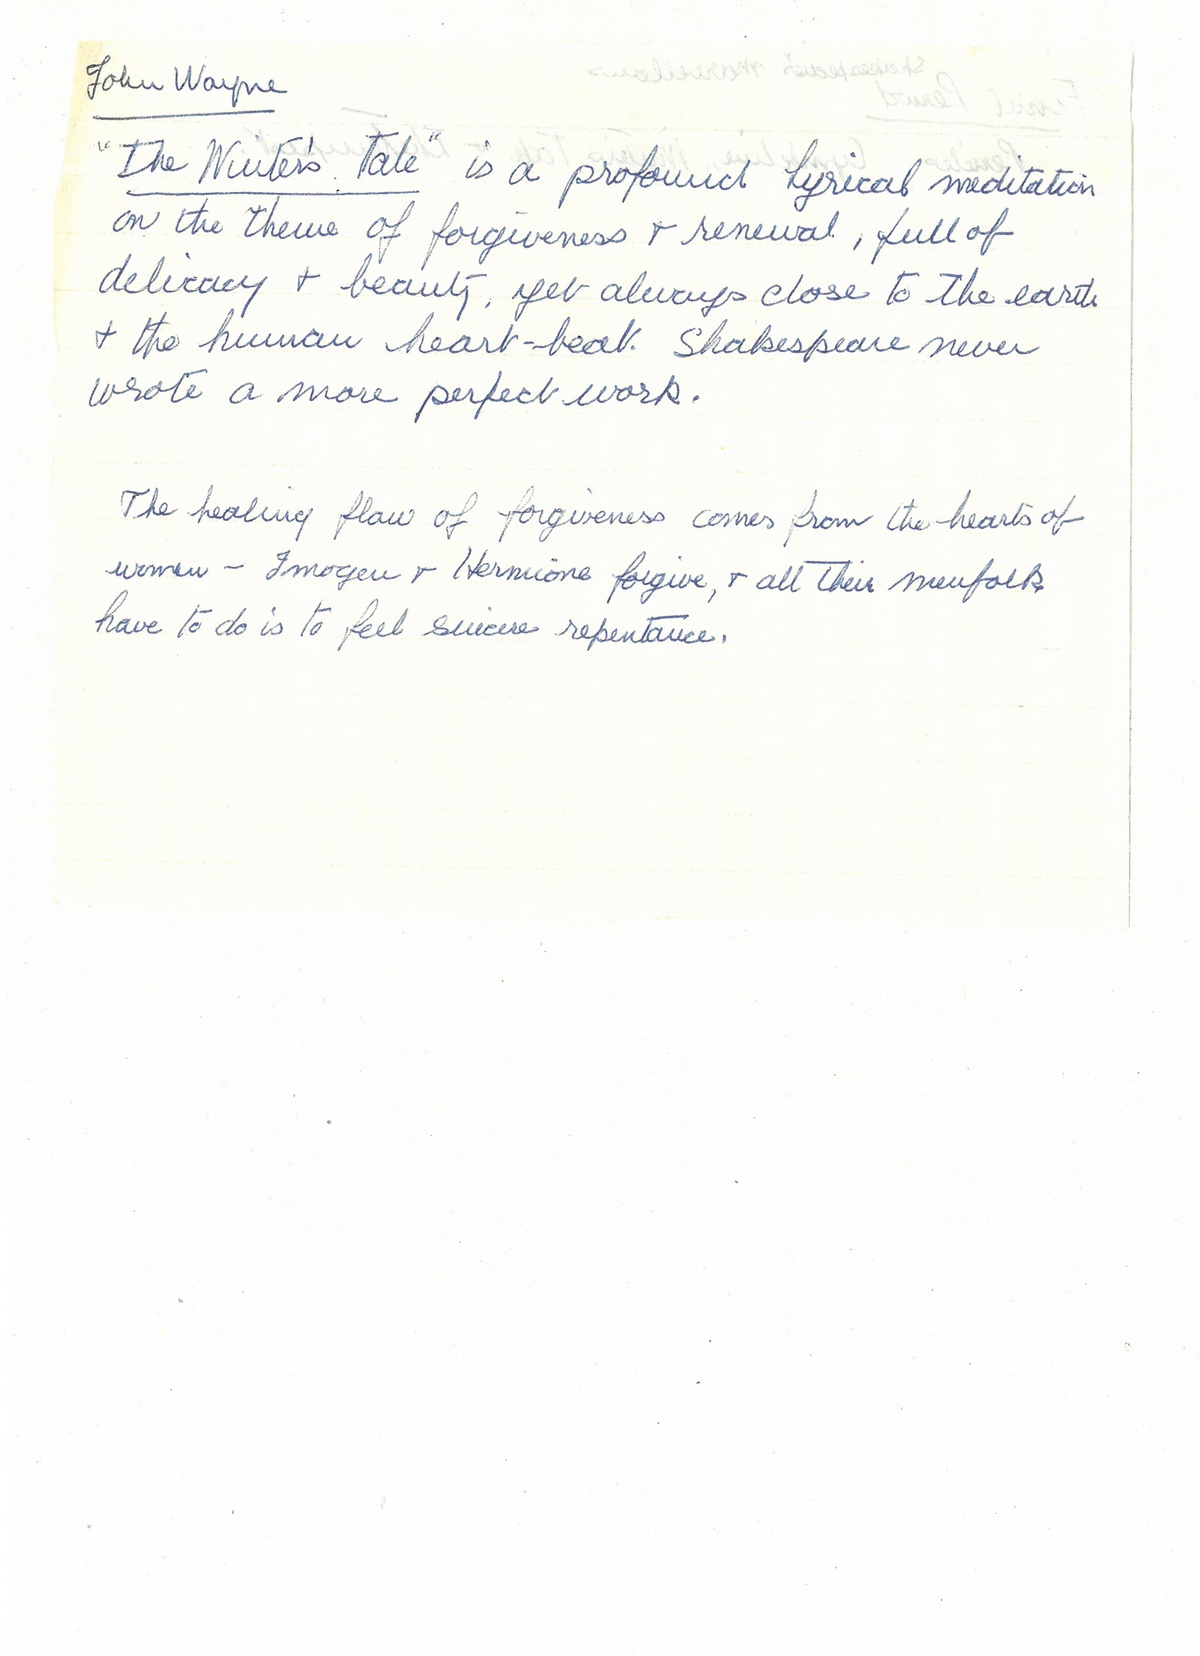 John Wayne
"The Winter's Tale" is a profound lyrical meditation
on the theme of forgiveness + renewal, full of
delicacy + beauty, yet always close to the earth
+ the human heart-beat. Shakespeare never
wrote a more perfect work.
The healing flow of forgiveness comes from the hearts of
women - Imogen + Hermione forgive, + all their menfolk
have to do is to feel sincere repentance.